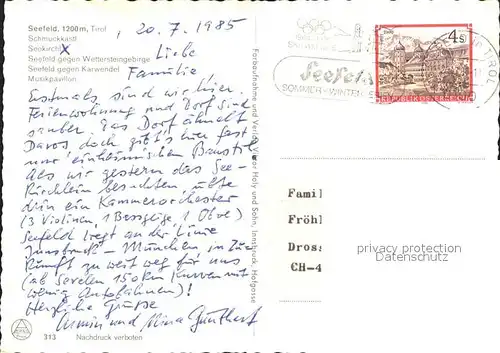 Seefeld, 1200m, Tirol
Schmuckkastl
Seekirchl X
Seefeld gegen Wettersteingebirge
Seefeld gegen Karwendel
Musikpavillon
20.7.1985
Liebe
Familie!
Erstmals sind wir hier.
Ferienwohnung und Dorf sind
sauber. Das Dorf ähnelt
Davos, doch gibt's hier fast
nur einheimischen Baustil
Als wir gestern das See-
Kirchlein besuchten, übte
drin ein Kammerorchester
(3 Violinen, 1 Bassgeige 1 Oboe)
Seefeld liegt an der Linie
Innsbruck - München in Zu
Kunft zu weit weg für uns
(ab Sevelen 150 km Kurven mit
wenig Autobahnen)!
Herzliche Grüsse
Armin und Mina Günthert
313 Nachdruck verboten
Farbaufnahme und Verlag Viktor Holy und Sohn, Innsbruck, Hofgasse
Seefeld
SOMMER - WINTER
4 S
REPUBLIK ÖSTERREICH
Famil
Fröhl
Dros:
CH-4
privacy protection
Datenschutz